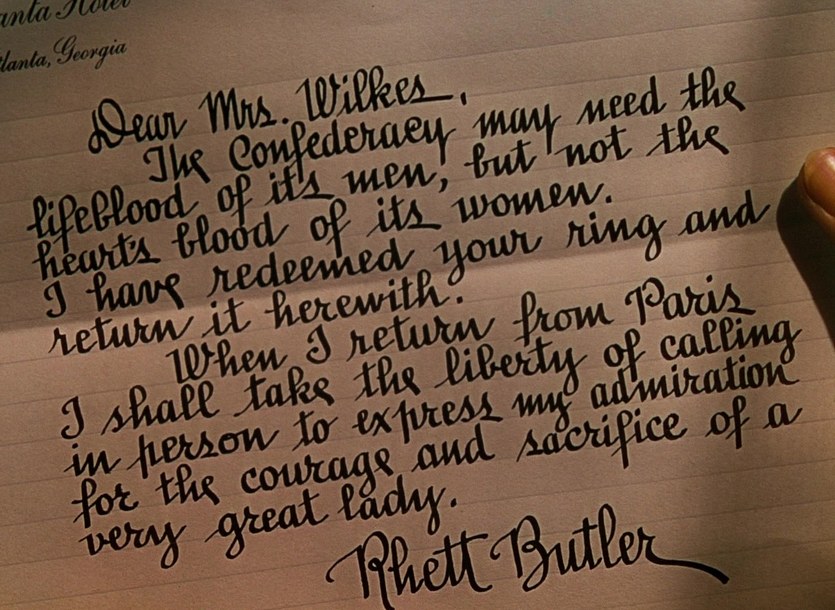 Hotel
Atlanta, Georgia
Dear Mrs. Wilkes,
The Confederacy may need the
lifeblood of its men, but not the
heart's blood of its women.
I have redeemed your ring and
return it herewith.
When I return from Paris
I shall take the liberty of calling
in person to express my admiration
for the courage and sacrifice of a
very great lady.
Rhett Butler